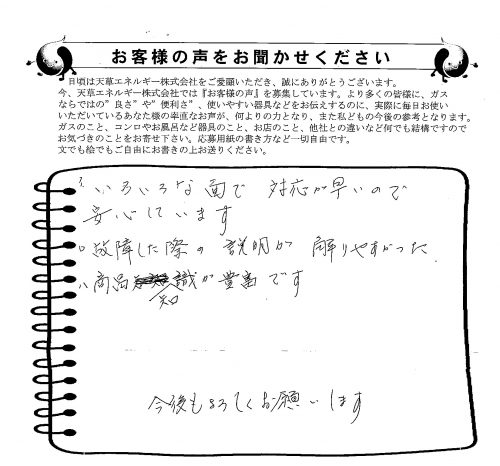 お客様の声をお聞かせください
日頃は天草エネルギー株式会社をご愛顧いただき、誠にありがとうございます。
今、天草エネルギー株式会社では『お客様の声』を募集しています。より多くの皆様に、ガス
ならではの”良さ”や”便利さ”、使いやすい器具などをお伝えするのに、実際に毎日お使い
いただいているあなた様の率直なお声が、何よりの力となり、また私どもの今後の参考となります。
ガスのこと、コンロやお風呂など器具のこと、お店のこと、他社との違いなど何でも結構ですので
お気づきのことをお寄せ下さい。応募用紙の書き方など一切自由です。
文でも絵でもご自由にお書きの上お送りください。
いろいろな面で 対応が早いので
安心しています
故障した際の 説明が 解りやすかった
商品知識が豊富です
今後もよろしくお願いします